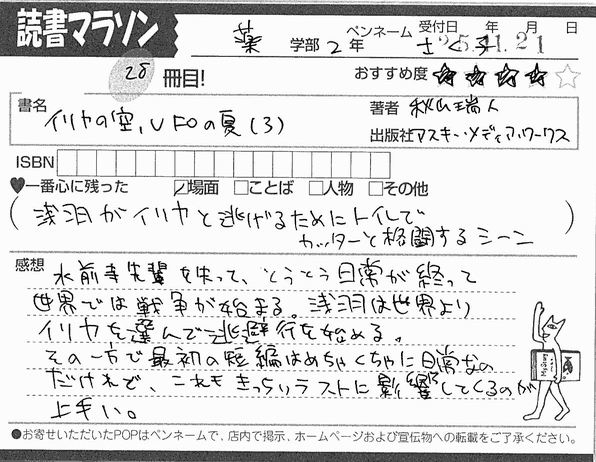 読書マラソン
薬 学部 2年 ペンネーム さくら 受付日 年 月 日
25.11.21
28 冊目!
おすすめ度 ★★★★☆
書名 イリヤの空,UFOの夏(3)
著者 秋山瑞人
出版社 アスキー・メディアワークス
ISBN
♥一番心に残った ☑場面 □ことば □人物 □その他
(浅羽がイリヤと逃げるためにトイレで
カッターと格闘するシーン)
感想 水前寺先輩を失って、とうとう日常が終って
世界では戦争が始まる。浅羽は世界より
イリヤを選んで逃避行を始める。
その一方で最初の短編はめちゃくちゃに日常なの
だけれど、これもきっちりラストに影響してくるのが
上手い。
●お寄せいただいたPOPはペンネームで、店内で掲示、ホームページおよび宣伝物への転載をご了承ください。